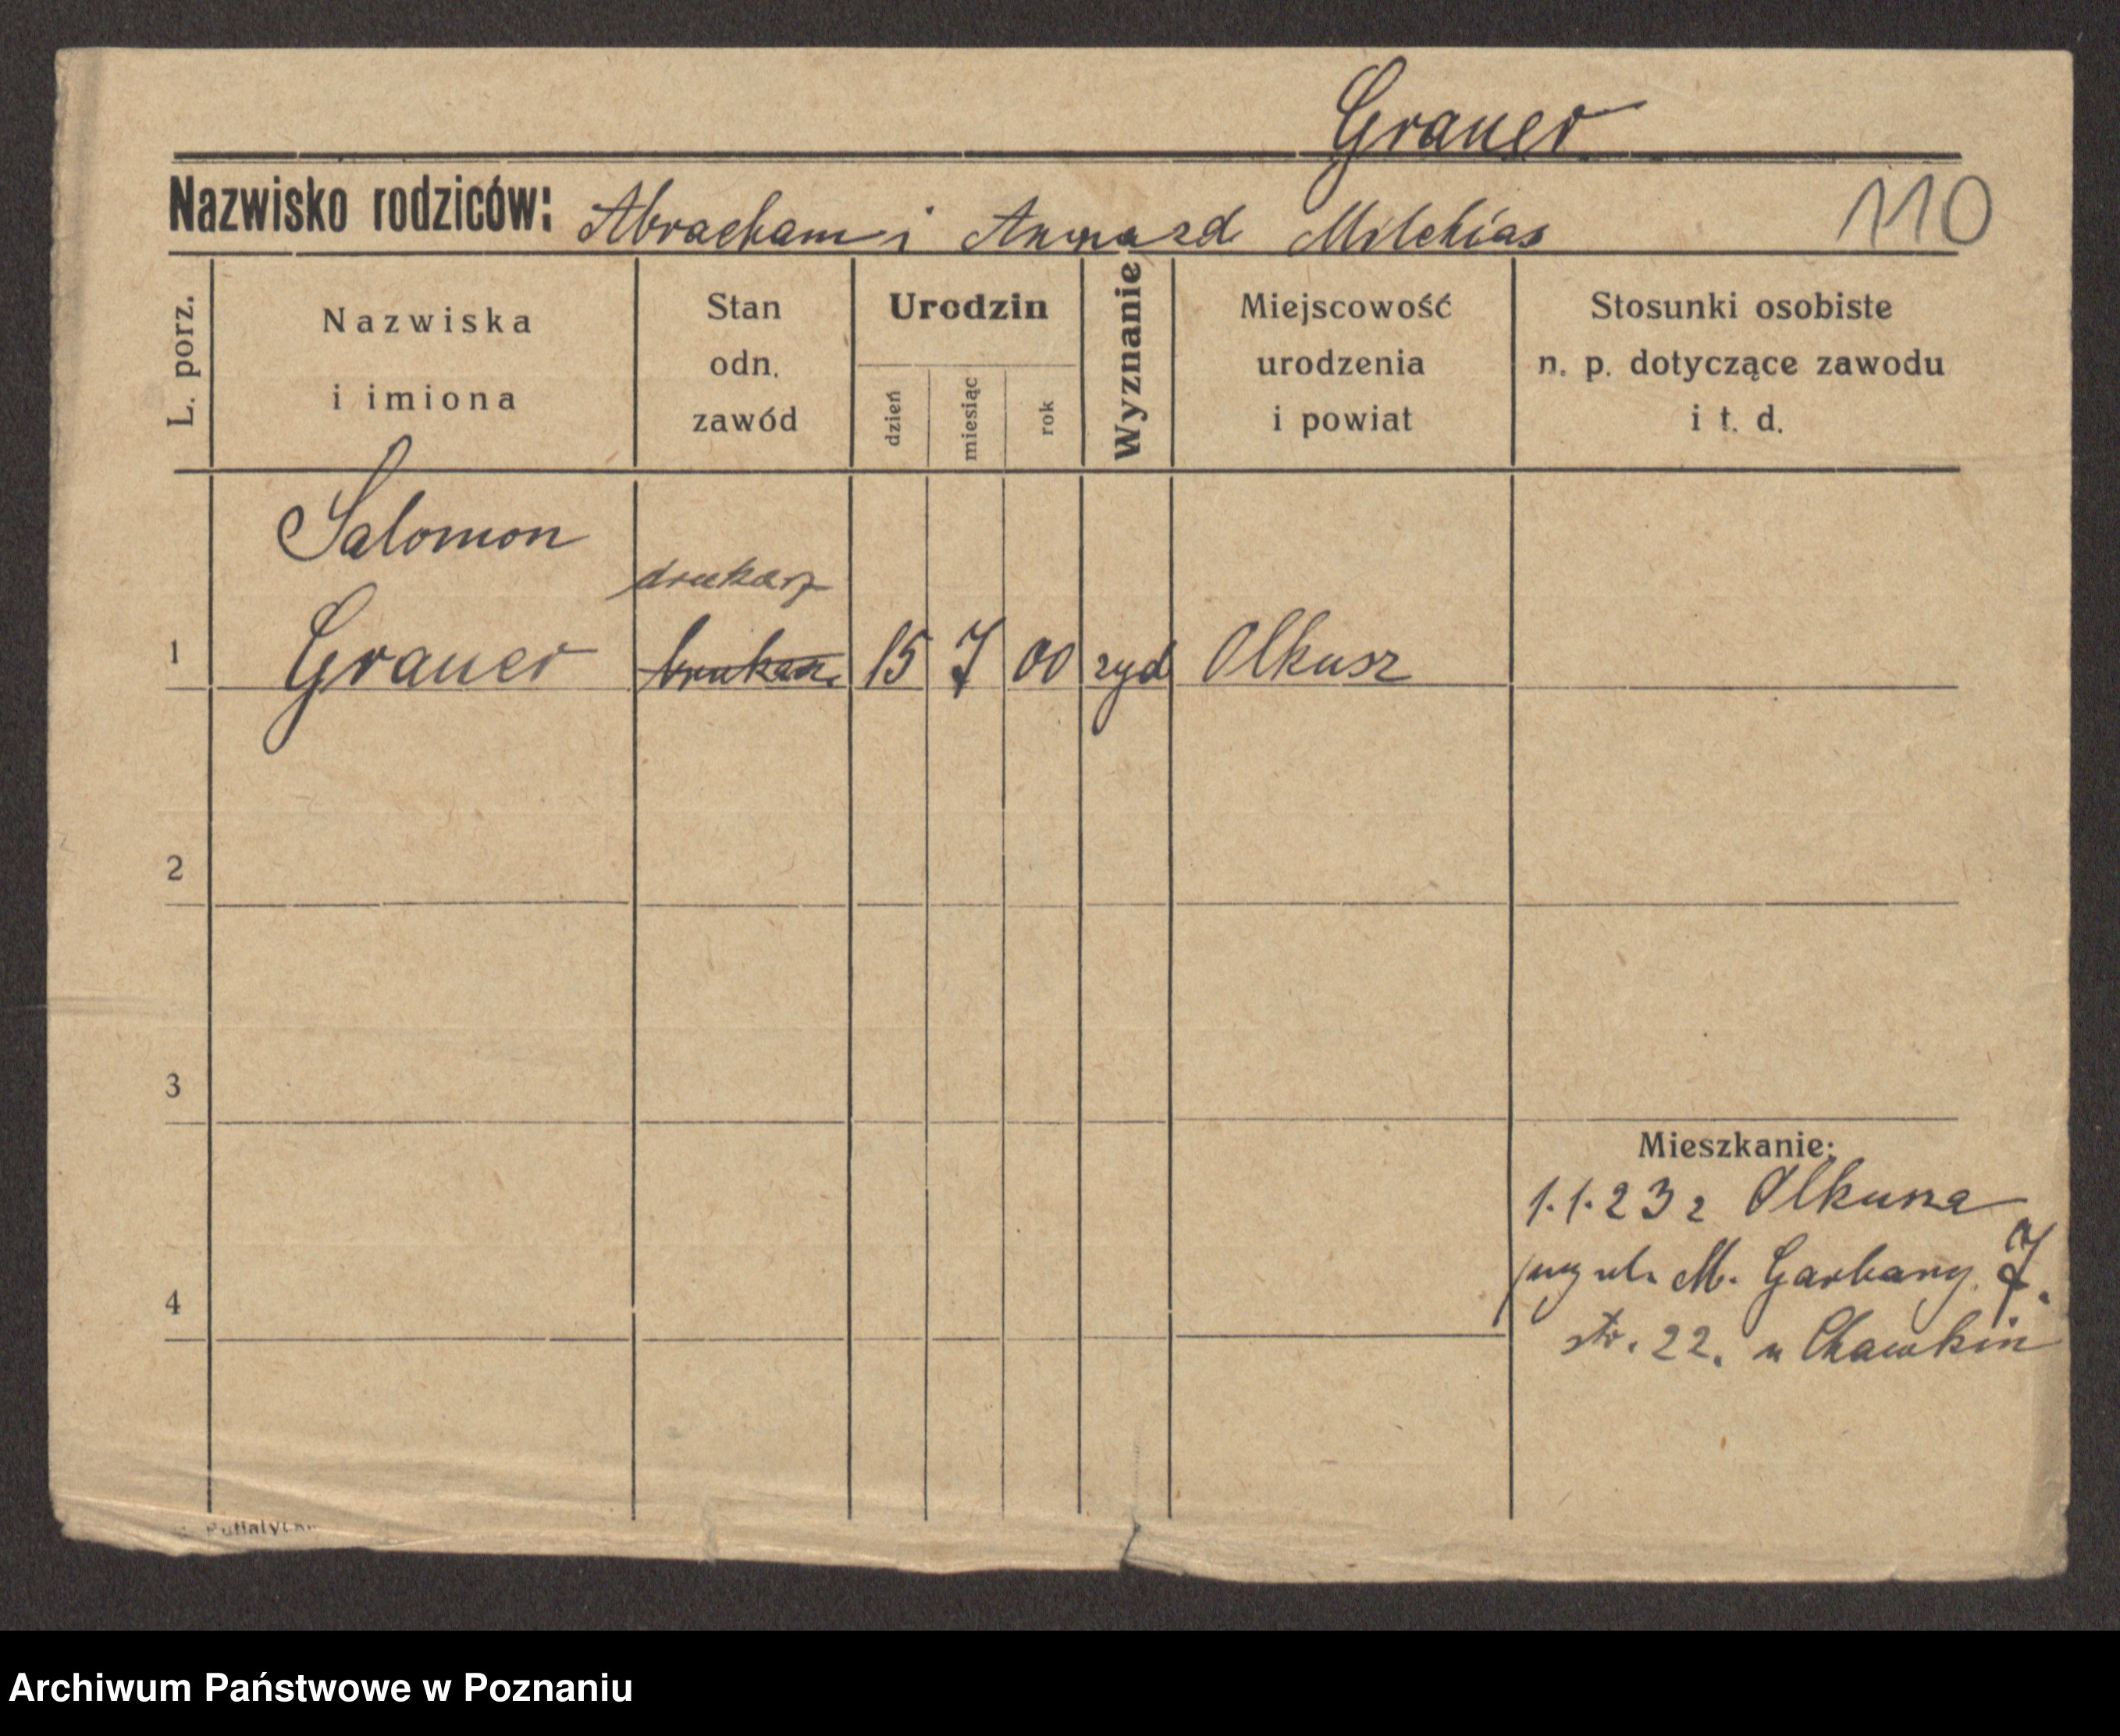 Grauer
Nazwisko rodziców: Abracham i Anna zd Milchias
110
L. porz.
Nazwiska
i imiona
Stan
odn.
zawód
Urodzin
dzień
miesiąc
rok
Wyznanie
Miejscowość
urodzenia
i powiat
Stosunki osobiste
n. p. dotyczące zawodu
i t. d.
Salomon
drukarz
1 Grauer brukarz 15 7 00 zyd Olkusz
2
3
Mieszkanie:
1.1.23 z Olkusza
ul. M. Garbary 7.
4
str. 22. u Chawkin
Archiwum Państwowe w Poznaniu